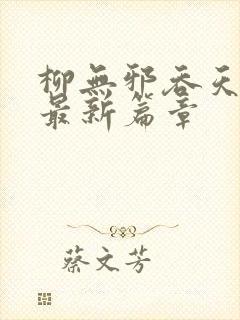 柳無邪吞天
最新篇章
蔡文芳